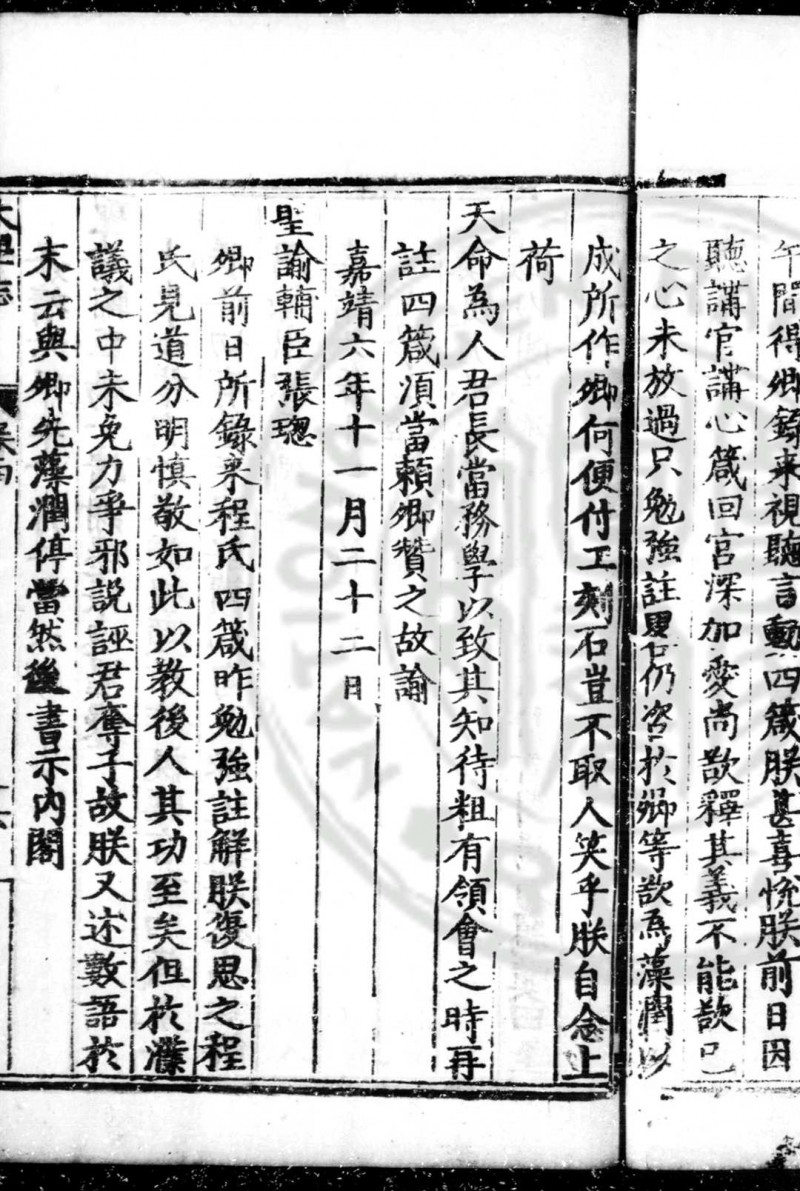 午間得卿錄来視聽言動四箴朕甚喜悅朕前日因
聽講官講心箴回宮深加愛尚欲釋其義不能欲已
之心未放過只勉強註畢仍咨扵卿等欲為藻潤以
成所作卿何便付工刻石豈不取人笑乎朕自念上
荷
天命為人君長當務學以致其知待粗有領會之時再
註四箴須當賴卿贊之故諭
嘉靖六年十一月二十二日
聖諭輔臣張璁
卿前日所錄来程氏四箴昨勉強註解朕復思之程
氏見道分明慎敬如此以教後人其功至矣但扵濮
議之中未免力爭邪說誣君奪子故朕又述數語扵
末云與卿先藻潤停當然後書示內閣